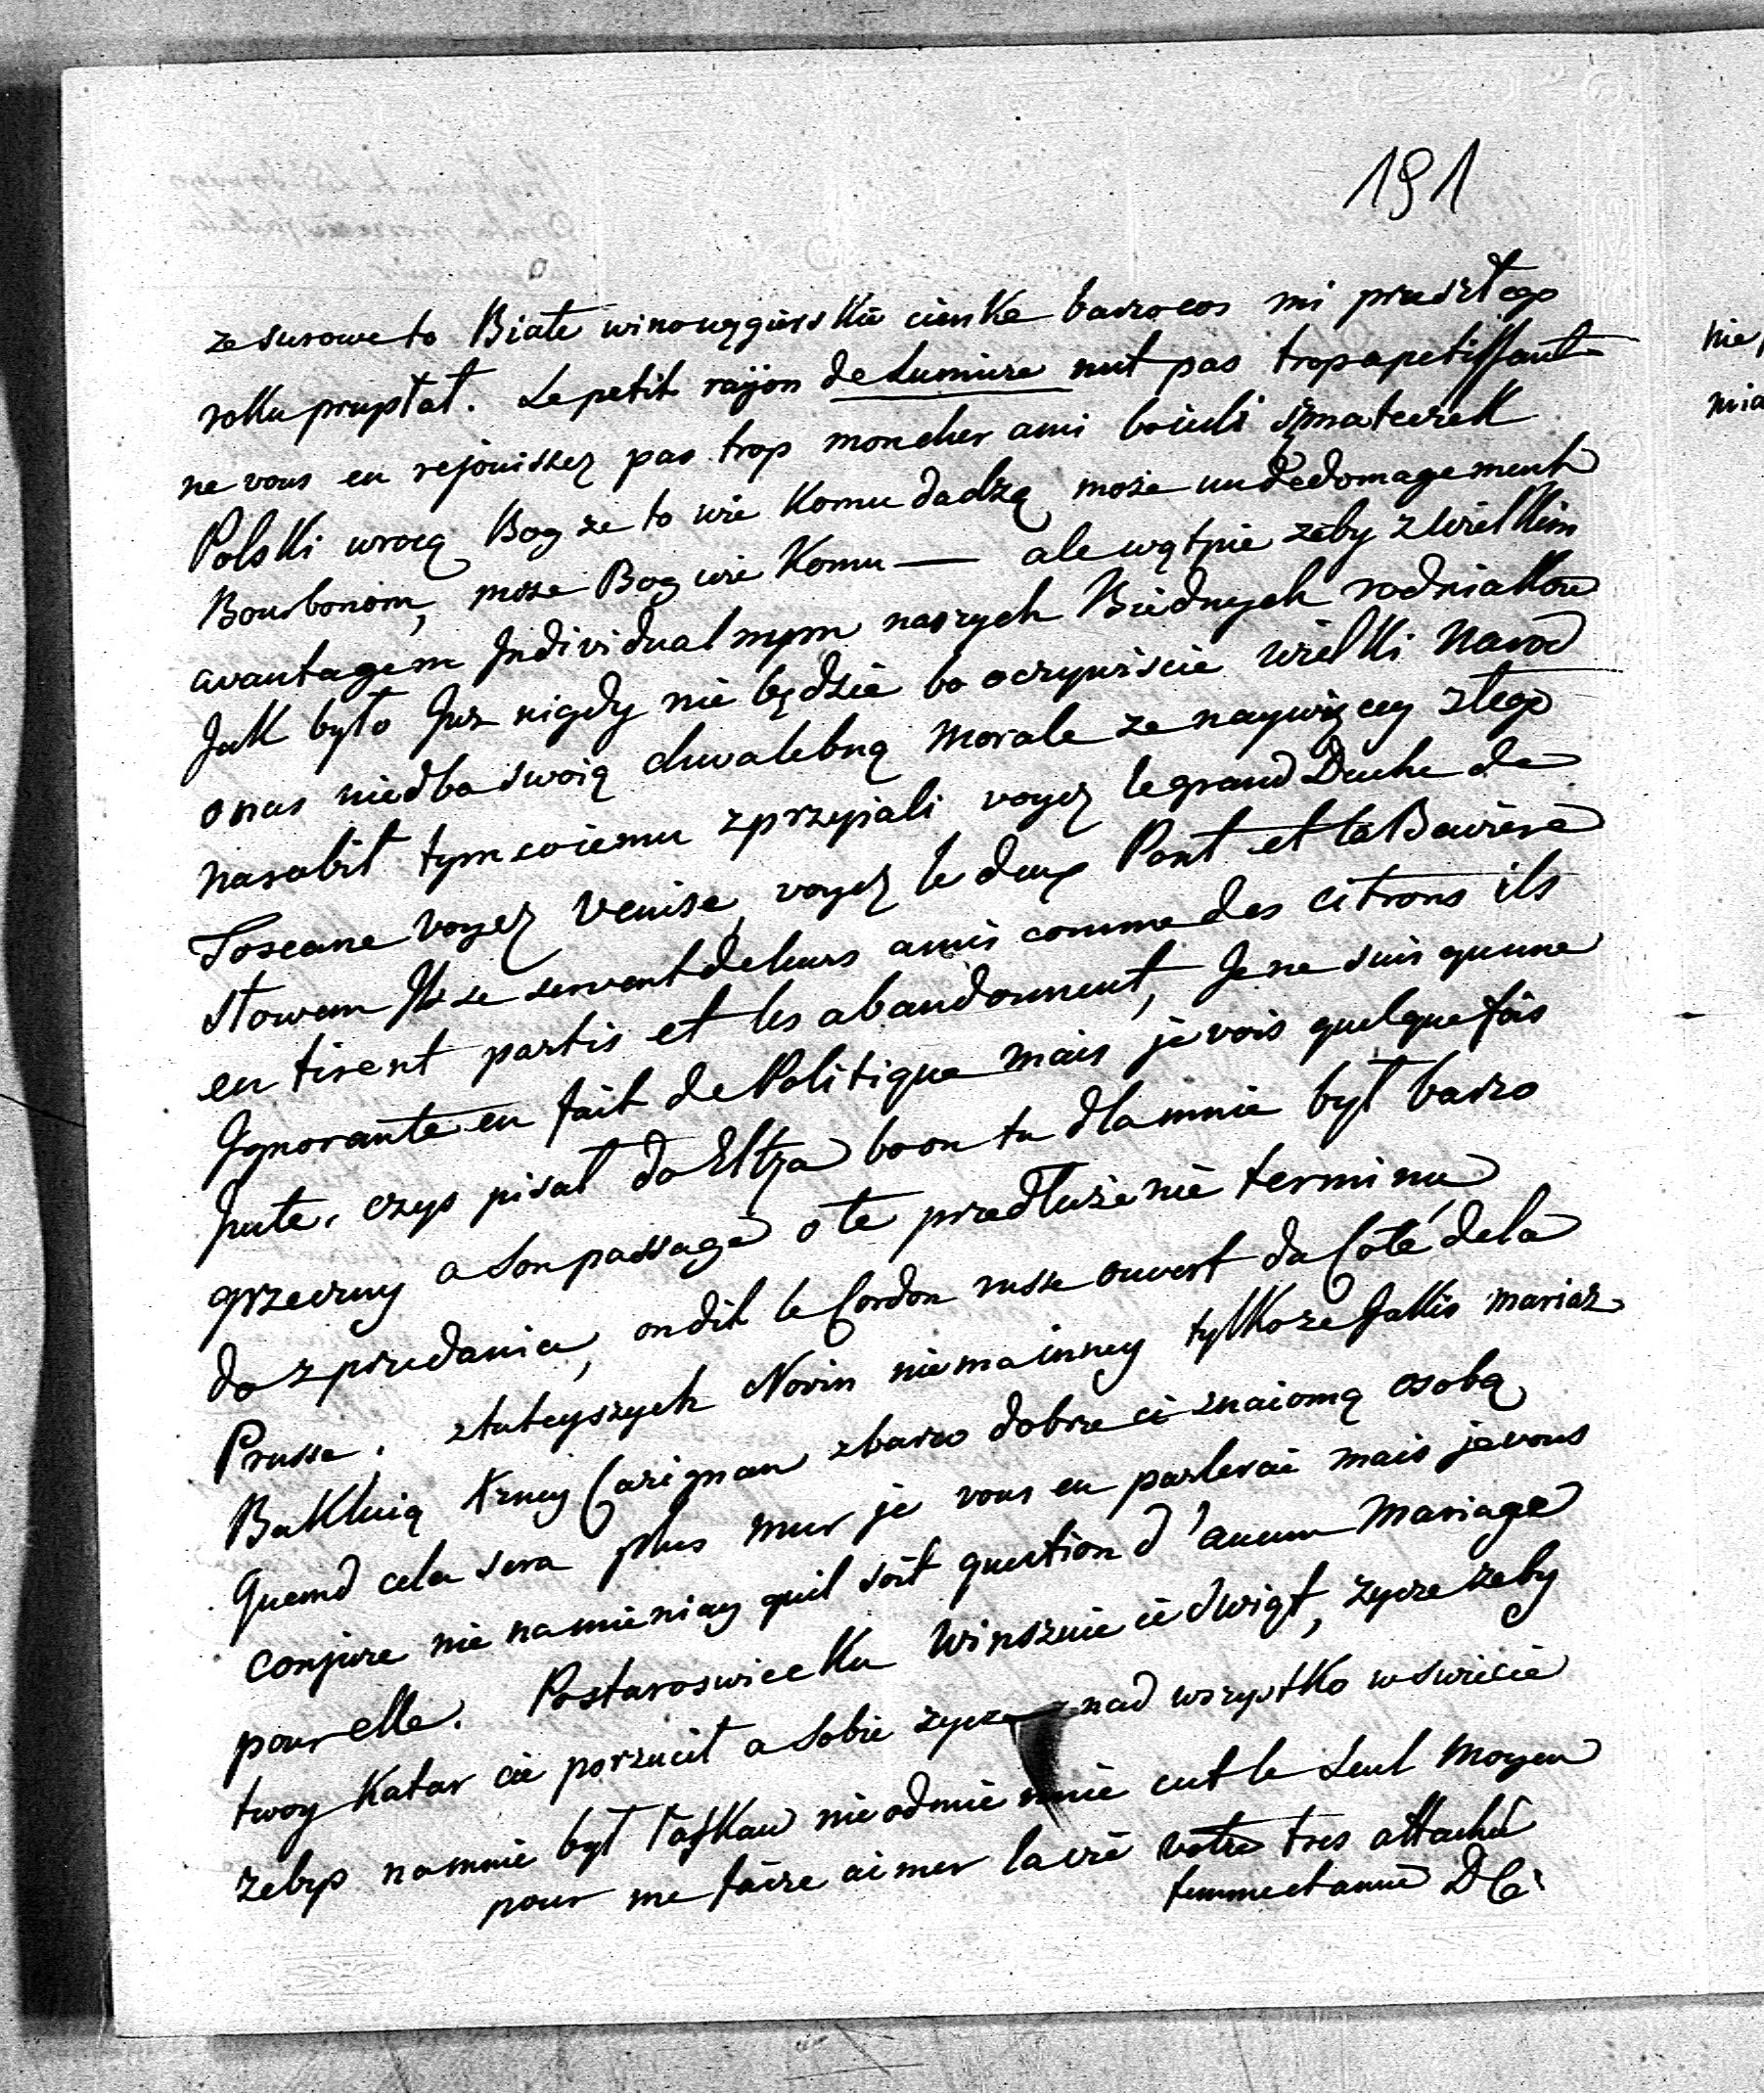 191
ze surowe to Białe wino węgierskie cienkie barzo cos mi przeszłego
roku przysłał. Le petit raÿon de Lumiere n'est pas trop apetissant
ne vous en rejouissez pas trop mon cher ami bo ieśli szmateczek
Polski wrocą Bog ze to wie Komu dadzą może un dedomagement
Bourbonom, może Bog wie Komu — ale wątpie zeby z wielkim
avantagem Individualnym naszych Biednych rodniakow
Jak było Juz nigdy nie będzie bo oczywiscie wielki Narod
o nas niedba swoią chwalebną morale ze naywięcey złego
narobił tym co iemu zprzyiali voyez le grand Duche de
Toscane voyez Venise, voyez le deux Pont et la Baviere
słowem Ils se servent de leurs amis comme des citrons ils
en tirent partis et les abandonnent, Je ne suis qu'une
Ignorante en fait de Politique mais je vois quelque fois
Juste. czys pisał do Eltza bo on tu dla mnie był barzo
grzeczny a son passage o te przedłużenie terminu
do zprzedania, on dit le Cordon russe ouvert du Côté de la
Prusse. z tuteyszych Nowin niema inney tylko ze Jakis mariaz
Bakluią Xzney Carignan z barzo dobrze ci znaiomą osobą
Quand cela sera plus mur je vous en parlerai mais je vous
conjure nie namieniay quil soit question d'aucun Mariage
pour elle. Postaroswiecku Winszuie cie Swigt, zycze zeby
twoy Katar cie porzucił a sobie zycze nad wszystko w swiecie
zebys na mnie był łaskaw nieodmiennie cest le seul moyen
pour me faire aimer la vie votre tres attaché
femme et amie DC
nie
mia